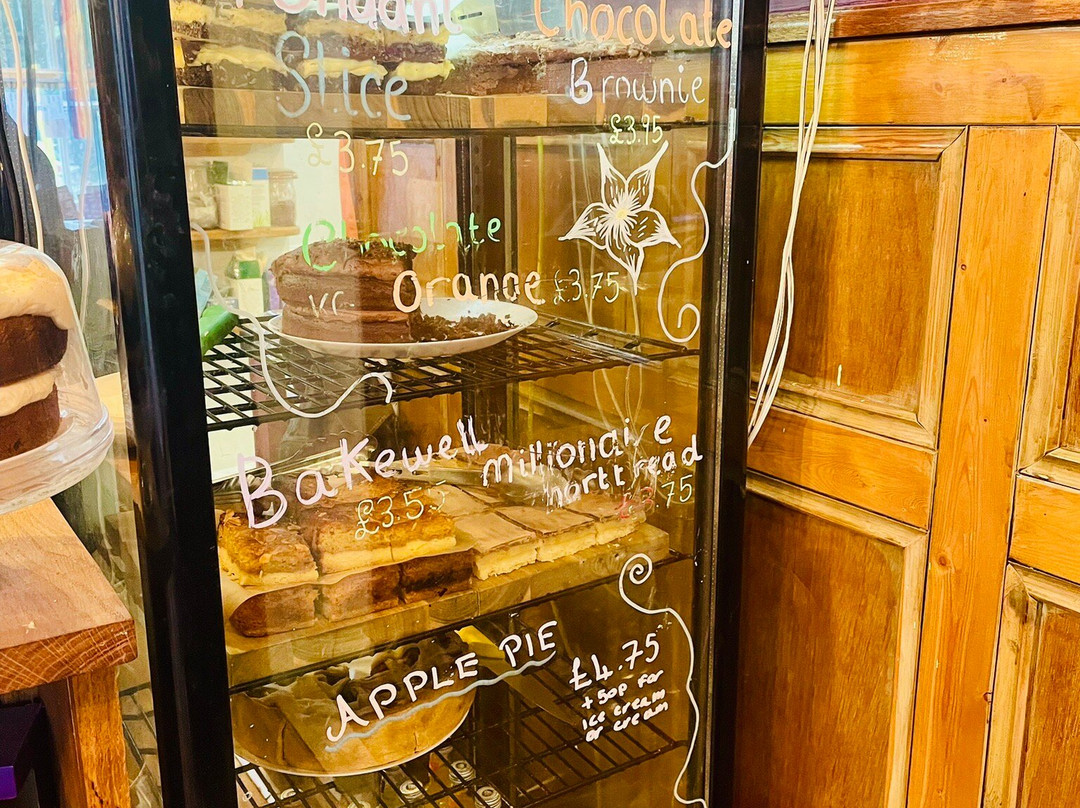 Chocolate
Slice
Brownie
£3.95
£3.75
Chocolate
Orange £3.75
Bakewell
£3.55
Millionaire
£3.75
APPLE PIE
£4.75
+ 50p for
ice cream
or cream